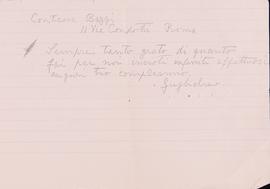 Contessa Bezzi
11 Via Condotti Roma
Sempre tanto grato di quanto
fai per noi inviati affettuosi
auguri tuo compleanno.
Guglielmo